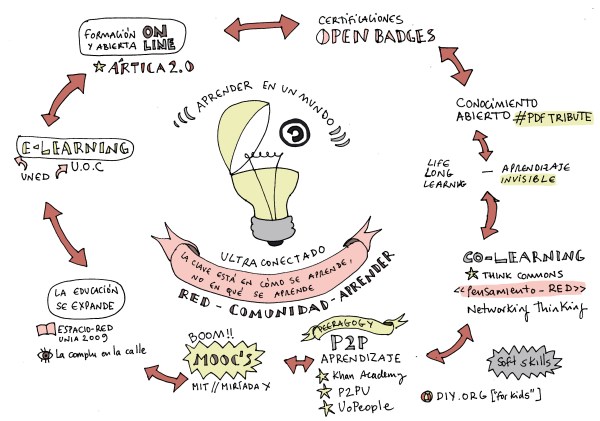 FORMACIÓN ON
Y ABIERTA LINE
ÁRTICA 2.0
CERTIFICACIONES
OPEN BADGES
CONOCIMIENTO
ABIERTO #PDFTRIBUTE
LIFE
LONG
LEARNING
— APRENDIZAJE
INVISIBLE
CO-LEARNING
THINK COMMONS
<<Pensamiento-RED>>
Networking Thinking
Soft skills
DIY.ORG ["for kids"]
PEERAGOGY
P2P
APRENDIZAJE
Khan Academy
P2PU
UoPeople
BOOM!!
MOOC'S
MIT // MIRÍADA X
LA EDUCACIÓN
SE EXPANDE
ESPACIO-RED
UNIA 2009
La complu en la calle
E-LEARNING
UNED U.O.C
APRENDER EN UN MUNDO
ULTRACONECTADO
LA CLAVE ESTÁ EN CÓMO SE APRENDE,
NO EN QUÉ SE APRENDE
RED - COMUNIDAD - APRENDER